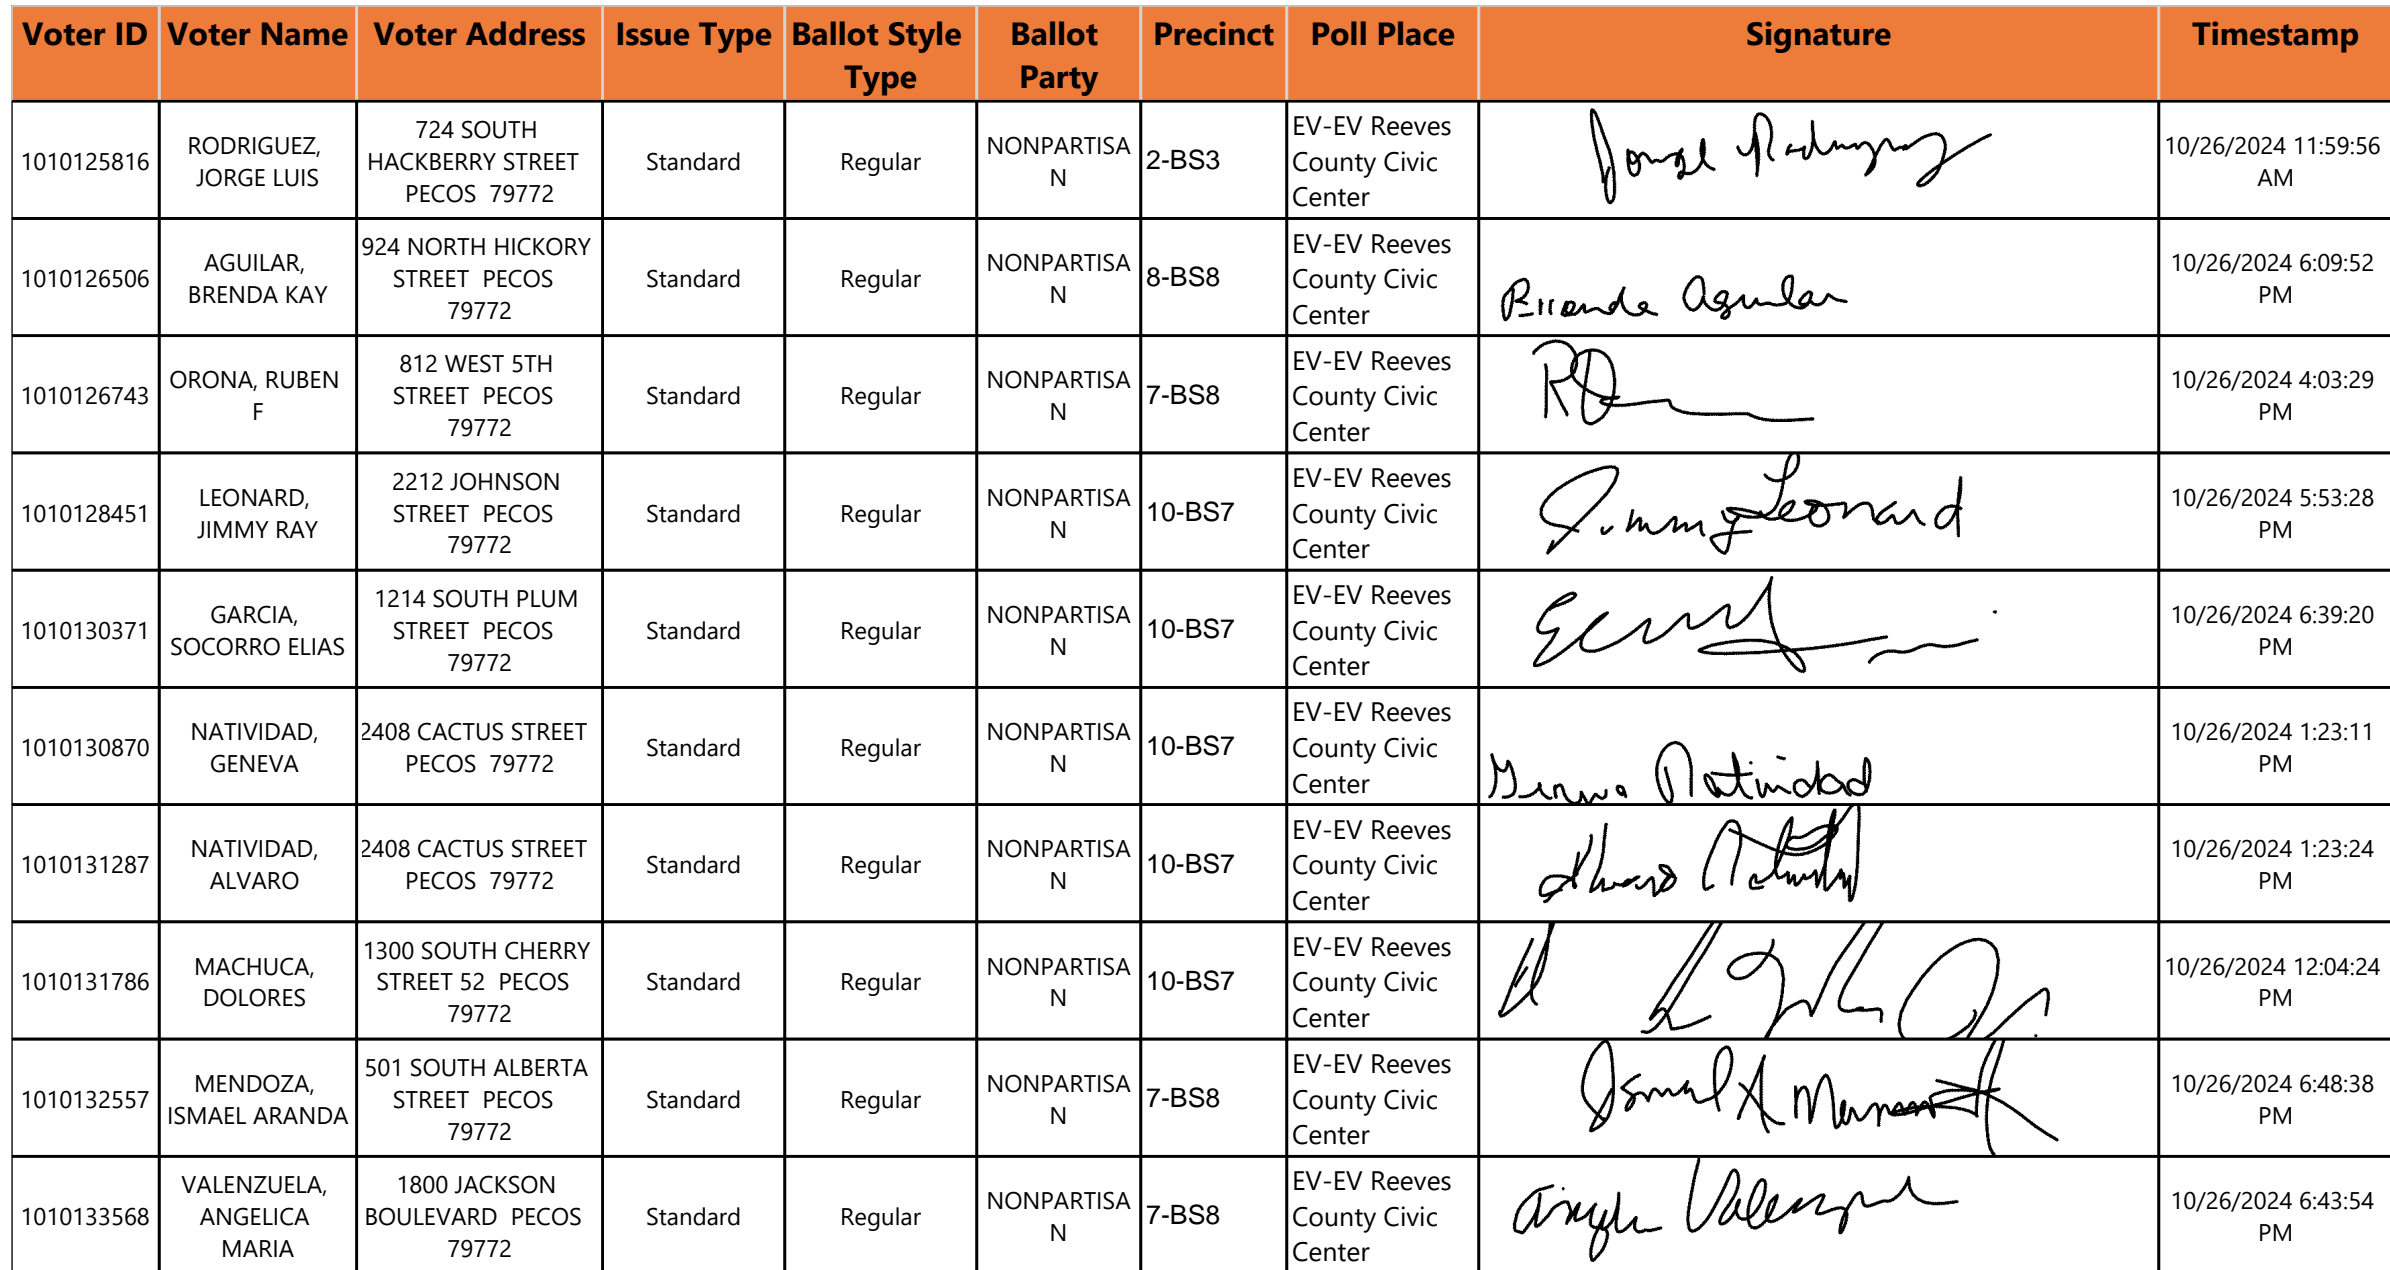 Voter ID Voter Name Voter Address Issue Type Ballot Style Type Ballot Party Precinct Poll Place Signature Timestamp
1010125816 RODRIGUEZ, JORGE LUIS 724 SOUTH HACKBERRY STREET PECOS 79772 Standard Regular NONPARTISAN 2-BS3 EV-EV Reeves County Civic Center Jorge Rodriguez 10/26/2024 11:59:56 AM
1010126506 AGUILAR, BRENDA KAY 924 NORTH HICKORY STREET PECOS 79772 Standard Regular NONPARTISAN 8-BS8 EV-EV Reeves County Civic Center Brenda Aguilar 10/26/2024 6:09:52 PM
1010126743 ORONA, RUBEN F 812 WEST 5TH STREET PECOS 79772 Standard Regular NONPARTISAN 7-BS8 EV-EV Reeves County Civic Center 10/26/2024 4:03:29 PM
1010128451 LEONARD, JIMMY RAY 2212 JOHNSON STREET PECOS 79772 Standard Regular NONPARTISAN 10-BS7 EV-EV Reeves County Civic Center Jimmy Leonard 10/26/2024 5:53:28 PM
1010130371 GARCIA, SOCORRO ELIAS 1214 SOUTH PLUM STREET PECOS 79772 Standard Regular NONPARTISAN 10-BS7 EV-EV Reeves County Civic Center 10/26/2024 6:39:20 PM
1010130870 NATIVIDAD, GENEVA 2408 CACTUS STREET PECOS 79772 Standard Regular NONPARTISAN 10-BS7 EV-EV Reeves County Civic Center Geneva Natividad 10/26/2024 1:23:11 PM
1010131287 NATIVIDAD, ALVARO 2408 CACTUS STREET PECOS 79772 Standard Regular NONPARTISAN 10-BS7 EV-EV Reeves County Civic Center Alvaro Natividad 10/26/2024 1:23:24 PM
1010131786 MACHUCA, DOLORES 1300 SOUTH CHERRY STREET 52 PECOS 79772 Standard Regular NONPARTISAN 10-BS7 EV-EV Reeves County Civic Center 10/26/2024 12:04:24 PM
1010132557 MENDOZA, ISMAEL ARANDA 501 SOUTH ALBERTA STREET PECOS 79772 Standard Regular NONPARTISAN 7-BS8 EV-EV Reeves County Civic Center Ismael A 10/26/2024 6:48:38 PM
1010133568 VALENZUELA, ANGELICA MARIA 1800 JACKSON BOULEVARD PECOS 79772 Standard Regular NONPARTISAN 7-BS8 EV-EV Reeves County Civic Center 10/26/2024 6:43:54 PM